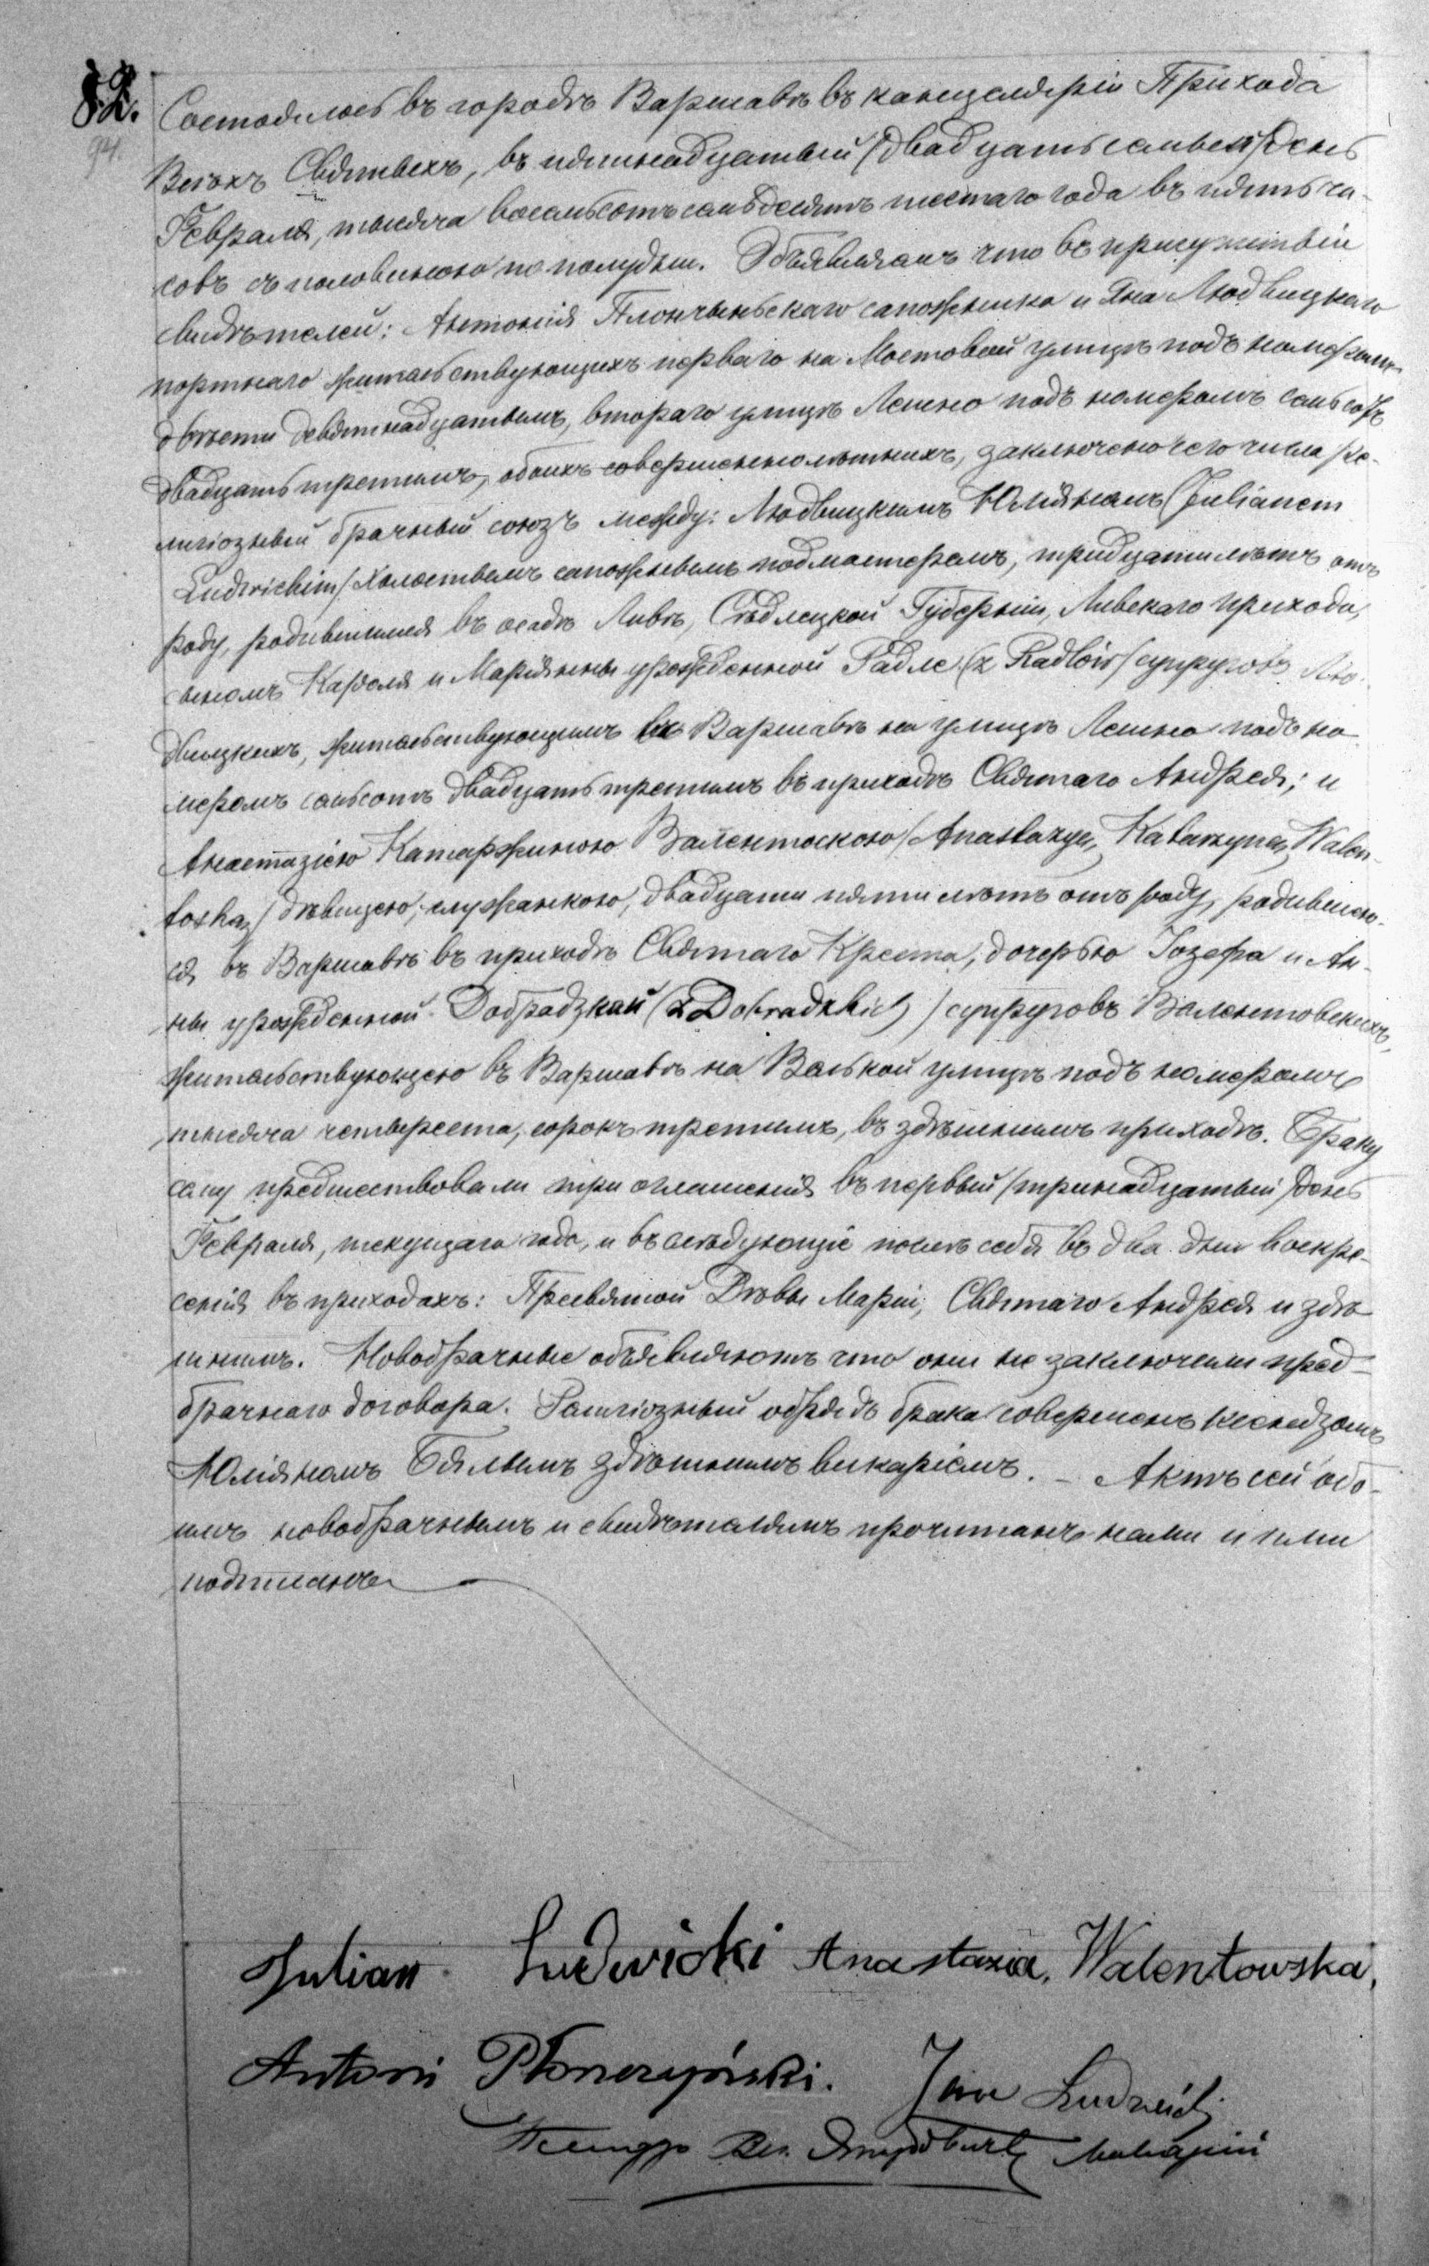 82.
94.
Состоялось въ городѣ Варшавѣ въ канцеляріи Прихода
Всѣхъ Святыхъ, въ пятнадцатый /двадцать седьмой/ день
Февраля, тысяча восемьсотъ семьдесятъ шестаго года въ пять ча-
совъ съ половиною по полудни. Объявляемъ что въ присутствіи
свидѣтелей: Антонія Плончыньскаго сапожника и Яна Людвицкаго
портнаго жительствующихъ перваго на Мостовой улицѣ подъ номеромъ
двѣсти девятнадцатымъ, втораго улицѣ Лешно подъ номеромъ семьсотъ
двадцать третимъ, обоихъ совершеннолѣтнихъ, заключено сего числа ре-
лигіозный брачный союзъ между: Людвицкимъ Юліяномъ (Julianem
Ludwickim/ холостымъ сапожнымъ подмастеромъ, тридцати лѣтъ отъ
роду, родившимся въ осадѣ Ливѣ, Сѣдлецкой Губерніи, Ливскаго прихода,
сыномъ Кароля и Маріянны урожденной Радле (z Radlów/ супруговъ Лю-
двицкихъ, жительствующимъ въ Варшавѣ на улицѣ Лешно подъ но-
меромъ семьсотъ двадцать третимъ въ приходѣ Святаго Андрея; и
Анастазіею Катаржиною Валентоскою /Anastazyą Katarzyną Walen-
toską/ дѣвицею, служанкою, двадцати пяти лѣтъ отъ роду, родившею-
ся въ Варшавѣ въ приходѣ Святаго Креста, дочерью Іозефа и Ан-
ны урожденной Добрадзкай (z Dobradzkich) супруговъ Валентовскихъ,
жительствующею въ Варшавѣ на Вольской улицѣ подъ номеромъ
тысяча четыреста, сорокъ третимъ, въ здѣшнимъ приходѣ. Браку
сему предшествовали три оглашенія въ первый /тринадцатый/ день
Февраля, текущаго года, и въ слѣдующіе послѣ себя въ два дни воскре-
сенія въ приходахъ: Пресвятой Дѣвы Маріи, Святаго Андрея и здѣ-
шнимъ. Новобрачные объявляютъ что они не заключили пред-
брачнаго договора. Религіозный обрядъ брака совершенъ ксендзомъ
Юліяномъ Бялымъ здѣшнимъ викаріемъ. – Актъ сей обо-
имъ новобрачнымъ и свидѣтелямъ прочитанъ нами и ими
подписанъ
Julian Ludwicki Anastazia. Walentowska,
Antoni Płonczyński. Jan Ludwicki